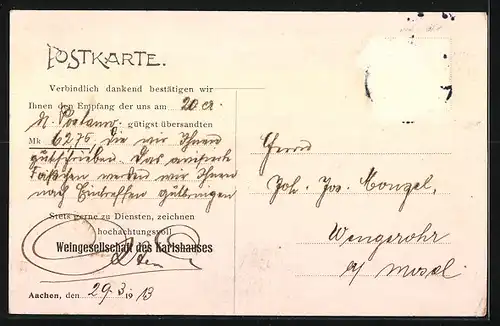 POSTKARTE.
Verbindlich dankend bestätigen wir
Ihnen den Empfang der uns am 20 cr.
gütigst übersandten
Mk 62,75 die wir Ihnen
gutschrieben. Das
Fäßchen werden wir Ihnen
nach Eintreffen gutbringen
Stets gerne zu Diensten, zeichnen
hochachtungsvoll
Weingesellschaft des Karlshauses
Aachen, den 29.3. 1913
Herrn
Joh. Jos. Monzel,
Wengerohr
a/ Mosel